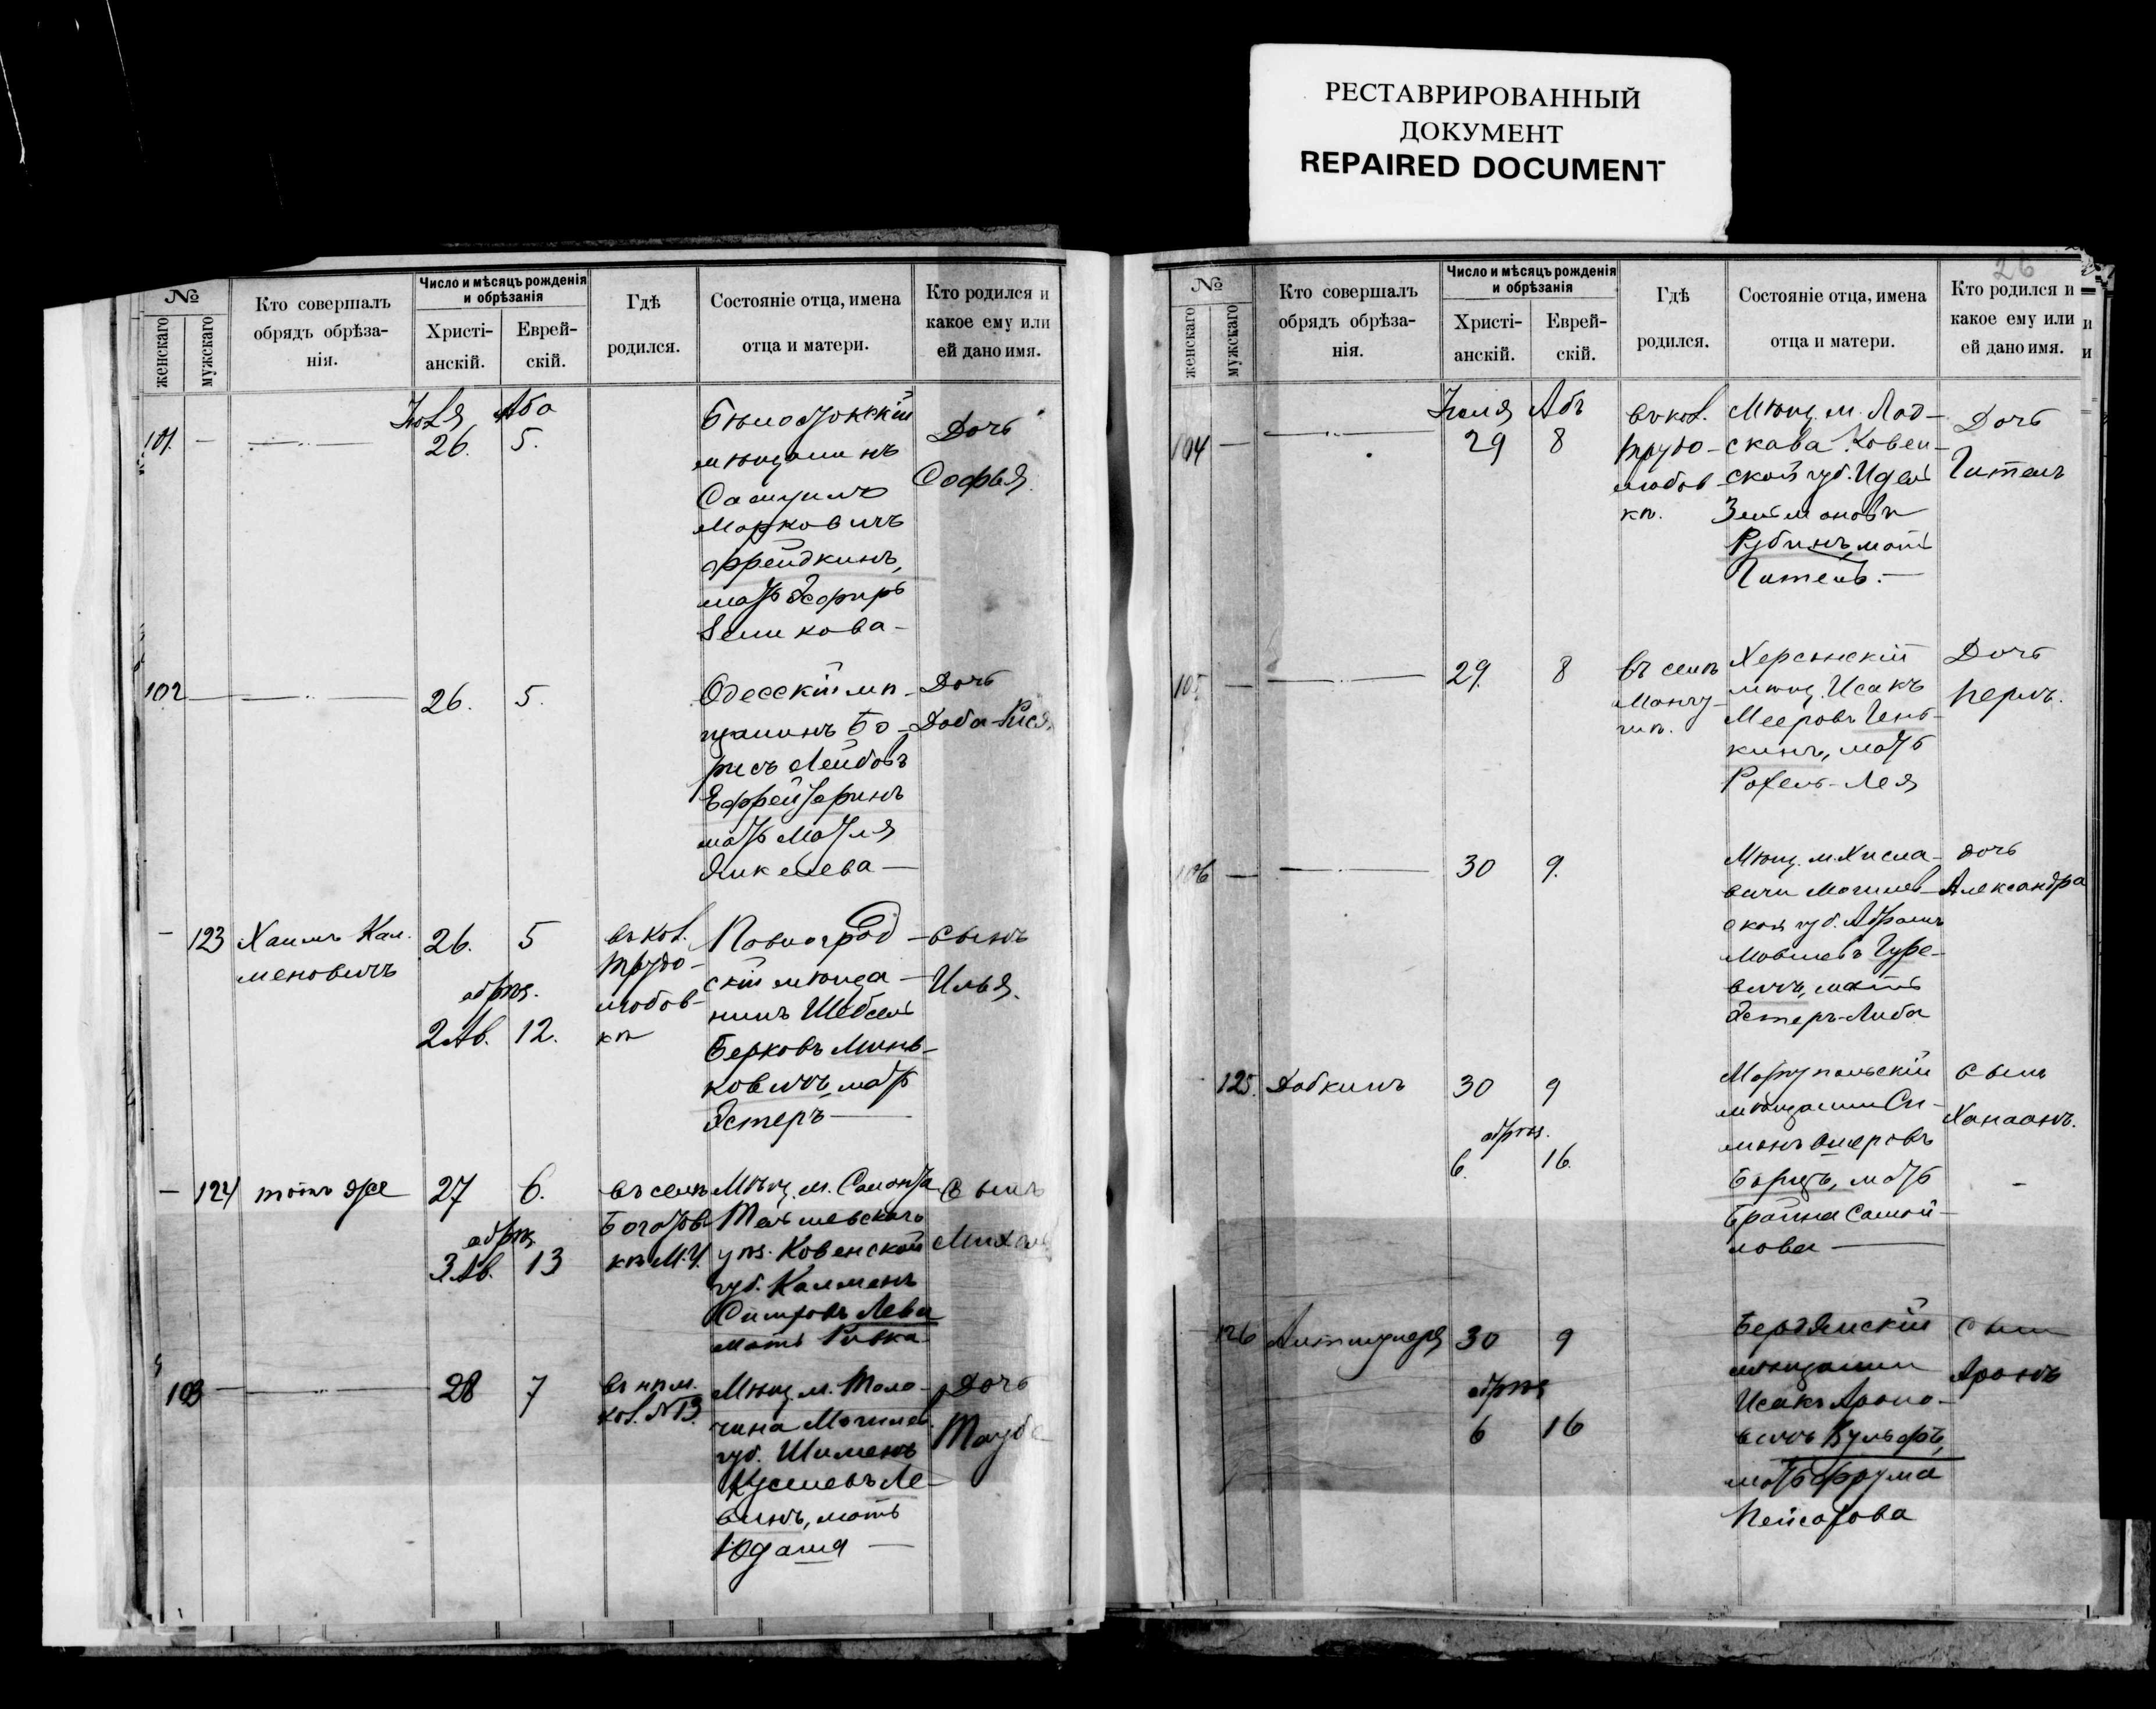 РЕСТАВРИРОВАННЫЙ
ДОКУМЕНТ
REPAIRED DOCUMENT
№
женскаго
мужскаго
Кто совершалъ
обрядъ обрѣза-
нія.
Число и мѣсяцъ рожденія
и обрѣзанія
Христі-
анскій.
Еврей-
скій.
Гдѣ
родился.
Состояніе отца, имена
отца и матери.
Кто родился и
какое ему или
ей дано имя.
101. —
Аба
26. 5.
мѣщанинъ
Самуилъ
Марковичъ
Фрейдкинъ,
мать Эсфирь
Дочь
Софья.
102 —
26. 5.
Одесскій мѣ-
щанинъ Бо-
рисъ Лейбовъ
мать
Дочь
Доба-Рися.
— 123
Хаимъ Кал-
меновичъ
26. 5
обрѣз.
2 Ав. 12.
въ кол.
Трудо-
любов-
кѣ
скій мѣща-
нинъ Шебсель
Берковъ Минь-
ковичъ, мать
Эстеръ —
Сынъ
Илья.
— 124
тотъ же
27 6.
обрѣз.
3 Ав. 13
въ селѣ
Богатов-
кѣ М. У.
Мѣщ. м.
Тельшевскаго
уѣз. Ковенской
губ. Калменъ
мать Ривка
Сынъ
103 —
28 7
въ нѣм.
кол. № 13.
Мѣщ. м. Толо-
чина Могилев.
губ. Шименъ
Ле-
винъ, мать
Юдашя —
Дочь
26
№
женскаго
мужскаго
Кто совершалъ
обрядъ обрѣза-
нія.
Число и мѣсяцъ рожденія
и обрѣзанія
Христі-
анскій.
Еврей-
скій.
Гдѣ
родился.
Состояніе отца, имена
отца и матери.
Кто родился и
какое ему или
ей дано имя.
и
и
104 —
Іюля Абъ
29 8
въ кол.
Трудо-
любов-
кѣ.
Мѣщ. м.
Ковен-
ской губ. Идель
Рубинъ, мать
Гитель. —
Дочь
Гитель
105 —
29. 8
въ селѣ
Херсонскій
мѣщ. Исакъ
Мееровъ Гень-
кинъ, мать
Рохель-Лея
Дочь
Перль.
106 —
30 9.
Мѣщ. м. Хисла-
вичи Могилев-
ской губ. Абрамъ
Мовшевъ Гуре-
вичъ, мать
Эстеръ-Либа
дочь
Александра
125.
Добкинъ
30 9
обрѣз.
6. 16.
Маріупольскій
мѣщанинъ Си-
монъ
мать
Брайна Самой-
лова —
Сынъ
Ханаанъ.
126
30 9
обрѣз
6 16
Бердянскій
мѣщанинъ
Исакъ Ароно-
вичъ Вульфъ,
мать Фрума
Пейсахова
Сынъ
Аронъ